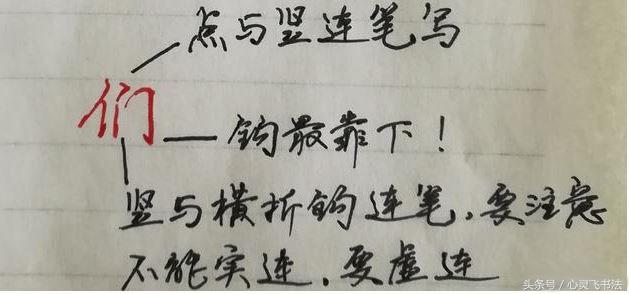 点与竖连笔写
们
钩最靠下！
竖与横折钩连笔，要注意
不能实连，要虚连
头条号／心灵飞书法